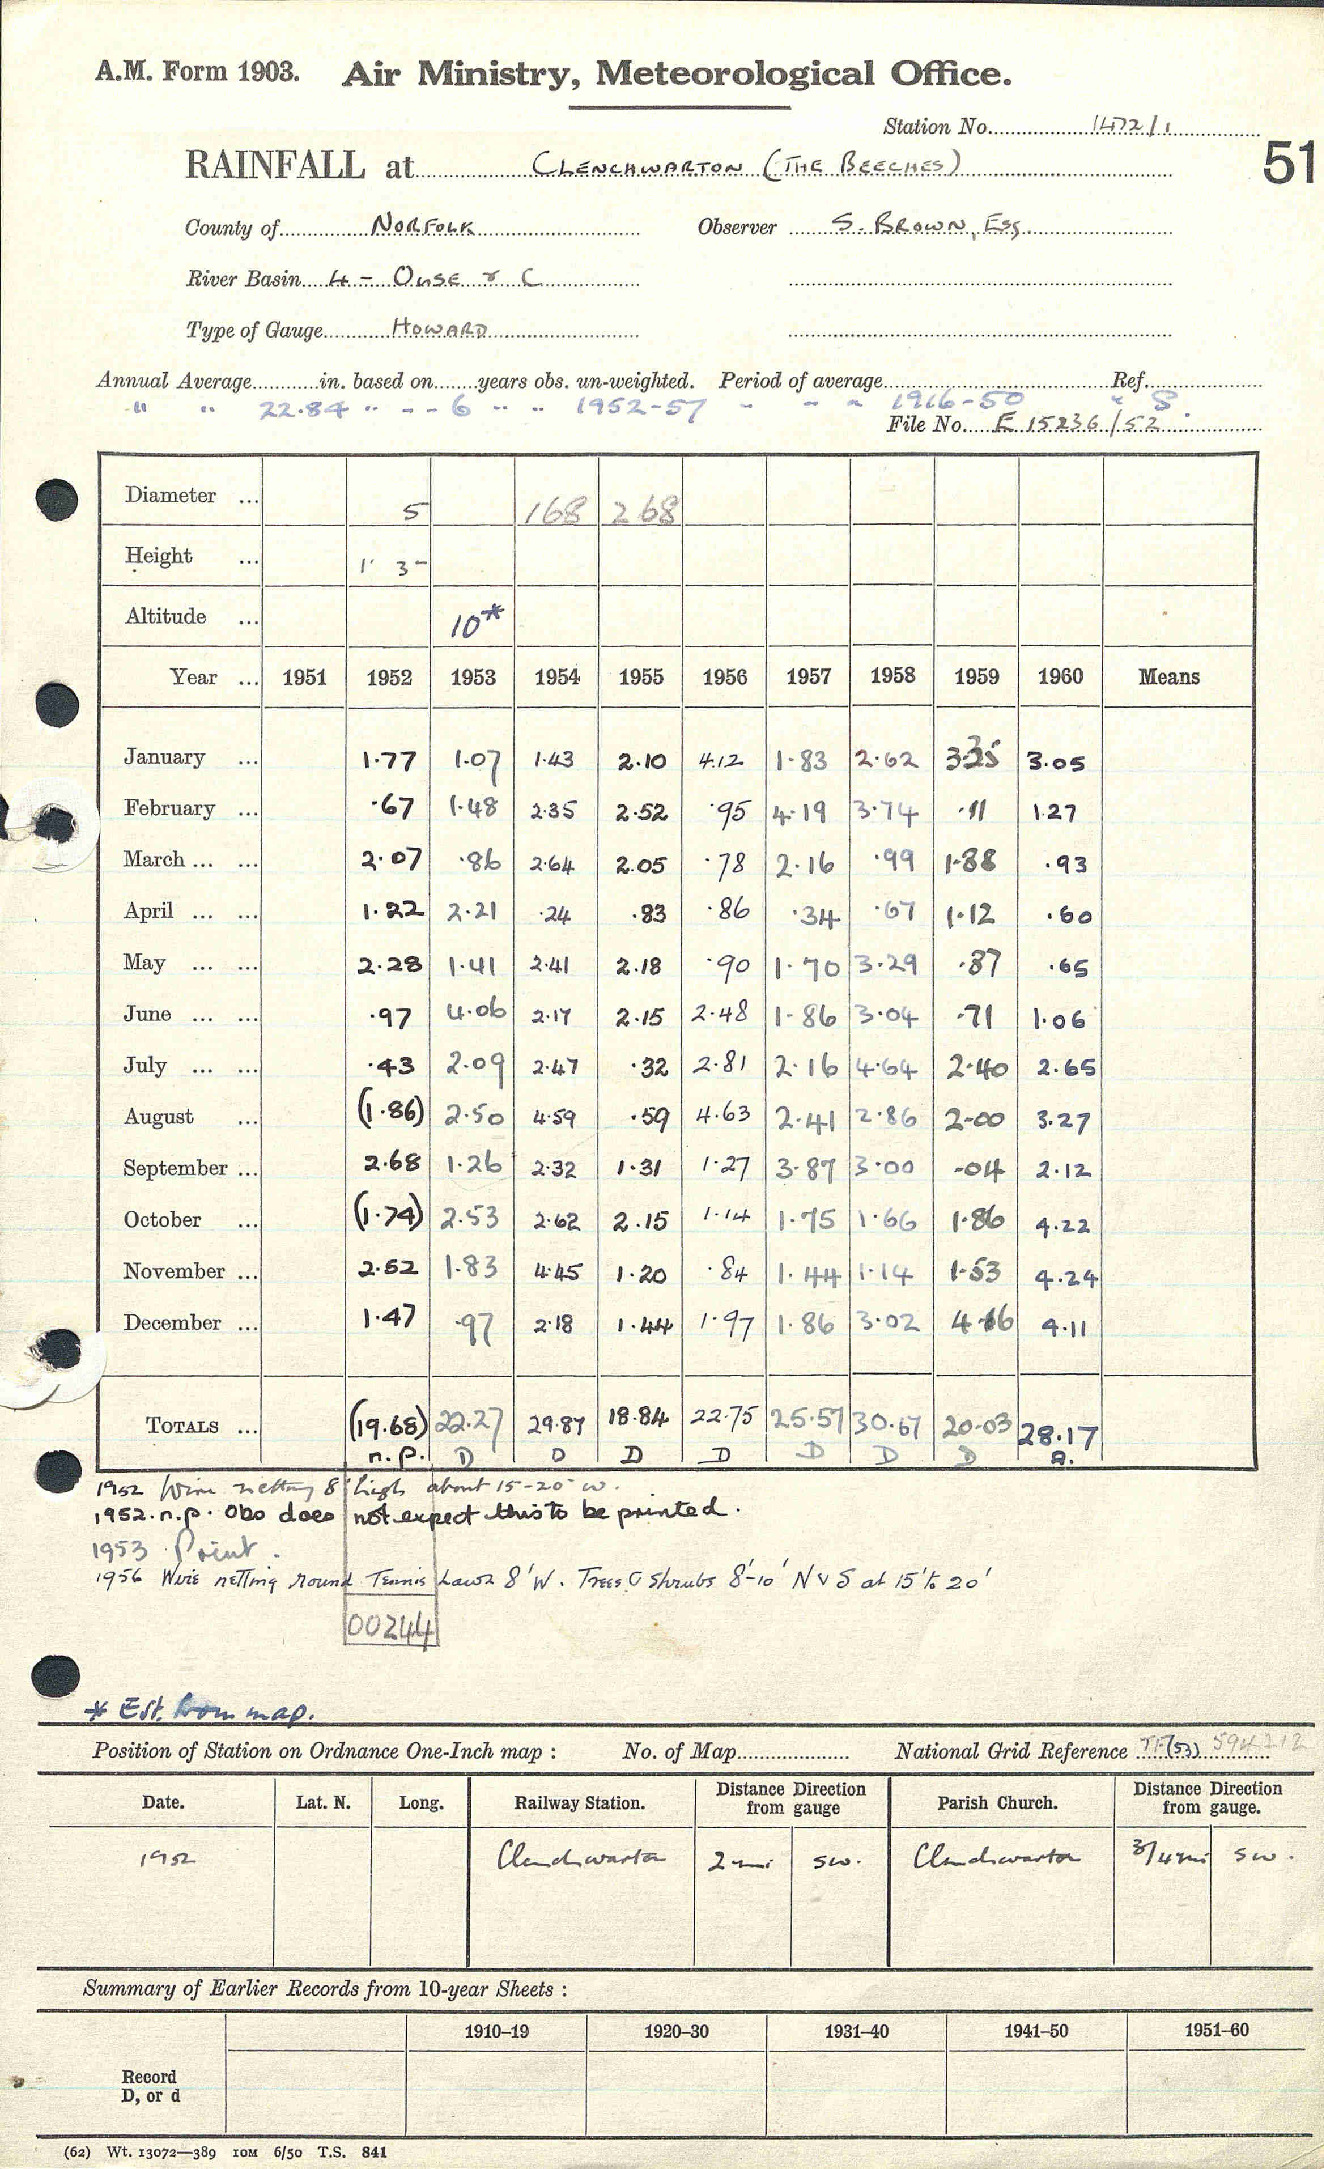 A.M. Form 1903. Air Ministry, Meteorological Office.
Station No. 1472/1
51
RAINFALL at CLENCHWARTON (THE BEECHES)
County of NORFOLK Observer S. BROWN, ESQ.
River Basin 4 - OUSE & C
Type of Gauge HOWARD
Annual Average in. based on years obs. un-weighted. Period of average Ref.
" " 22.84 " " " 6 " " 1952-57 " " " 1916-50 " S.
File No. E 15236/52
Diameter ... 5 168 268
Height ... 1' 3"
Altitude ... 10*
Year ... 1951 1952 1953 1954 1955 1956 1957 1958 1959 1960 Means
January ... 1.77 1.07 1.43 2.10 4.12 1.83 2.62 3.35 3.05
February ... .67 1.48 2.35 2.52 .95 4.19 3.74 .11 1.27
March ... ... 2.07 .86 2.64 2.05 .78 2.16 .99 1.88 .93
April ... ... 1.22 2.21 .24 .83 .86 .34 .67 1.12 .60
May ... ... 2.28 1.41 2.41 2.18 .90 1.70 3.29 .87 .65
June ... ... .97 4.06 2.17 2.15 2.48 1.86 3.04 .71 1.06
July ... ... .43 2.09 2.47 .32 2.81 2.16 4.64 2.40 2.65
August ... (1.86) 2.50 4.59 .59 4.63 2.41 2.86 2.00 3.27
September ... 2.68 1.26 2.32 1.31 1.27 3.87 3.00 .04 2.12
October ... (1.74) 2.53 2.62 2.15 1.14 1.75 1.66 1.86 4.22
November ... 2.52 1.83 4.45 1.20 .84 1.44 1.14 1.53 4.24
December ... 1.47 .97 2.18 1.44 1.97 1.86 3.02 4.16 4.11
TOTALS ... (19.68) 22.27 29.87 18.84 22.75 25.57 30.67 20.03 28.17
n.p. D D D D D D D A.
1952 Wire netting 8' high about 15-20' W.
1952. n.p. Obs does not expect this to be printed.
1953 Print.
1956 Wire netting round Tennis Lawn 8' W. Trees & Shrubs 8'-10' N & S at 15' to 20'
00244
* Est. from map.
Position of Station on Ordnance One-Inch map : No. of Map National Grid Reference TF(53) 594212
Date. Lat. N. Long. Railway Station. Distance from gauge Direction Parish Church. Distance from gauge. Direction
1952 Clenchwarton 2 mi SW. Clenchwarton 3/4 mi SW.
Summary of Earlier Records from 10-year Sheets :
1910–19 1920–30 1931–40 1941–50 1951–60
Record
D, or d
(62) Wt. 13072—389 10M 6/50 T.S. 841